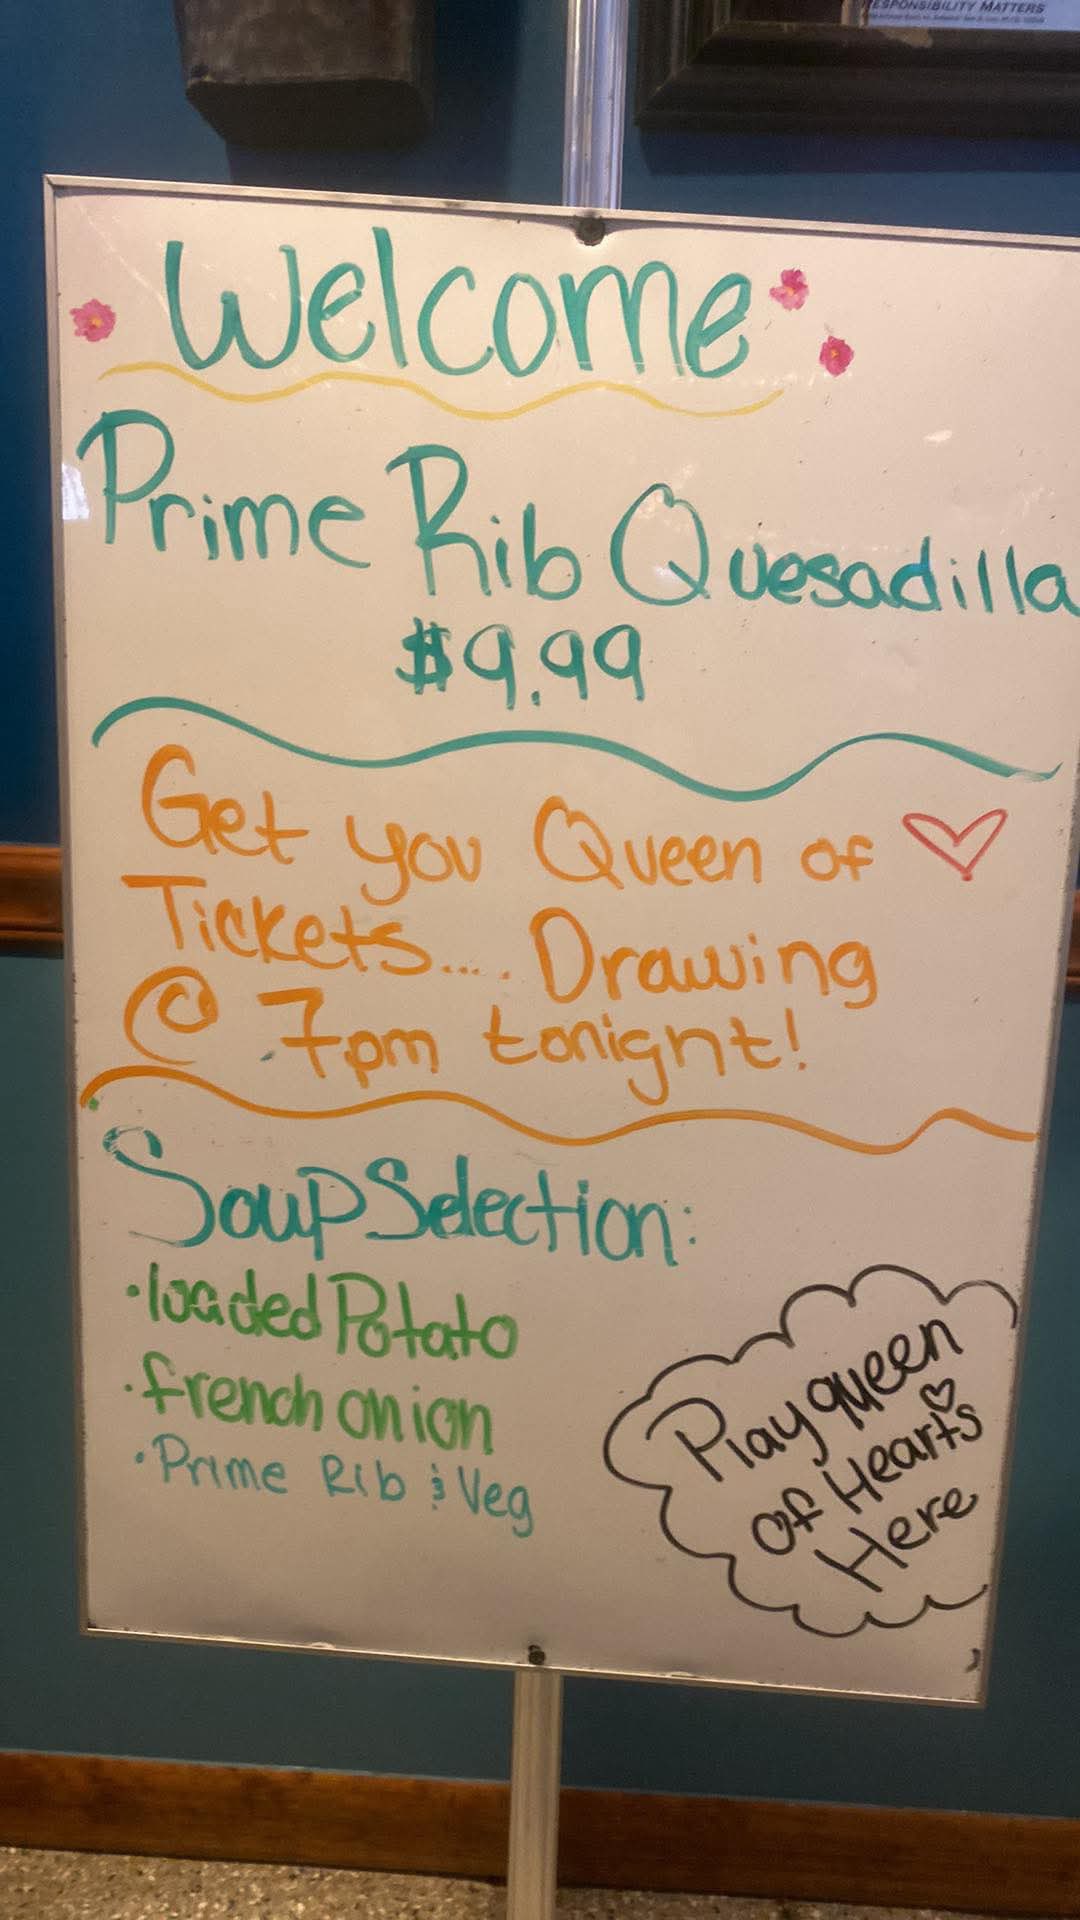 RESPONSIBILITY MATTERS
Welcome
Prime Rib Quesadilla
$9.99
Get you Queen of ♡
Tickets.... Drawing
@ 7pm tonight!
Soup Selection:
• loaded Potato
• french onion
• Prime Rib & Veg
Play queen
of Hearts
Here